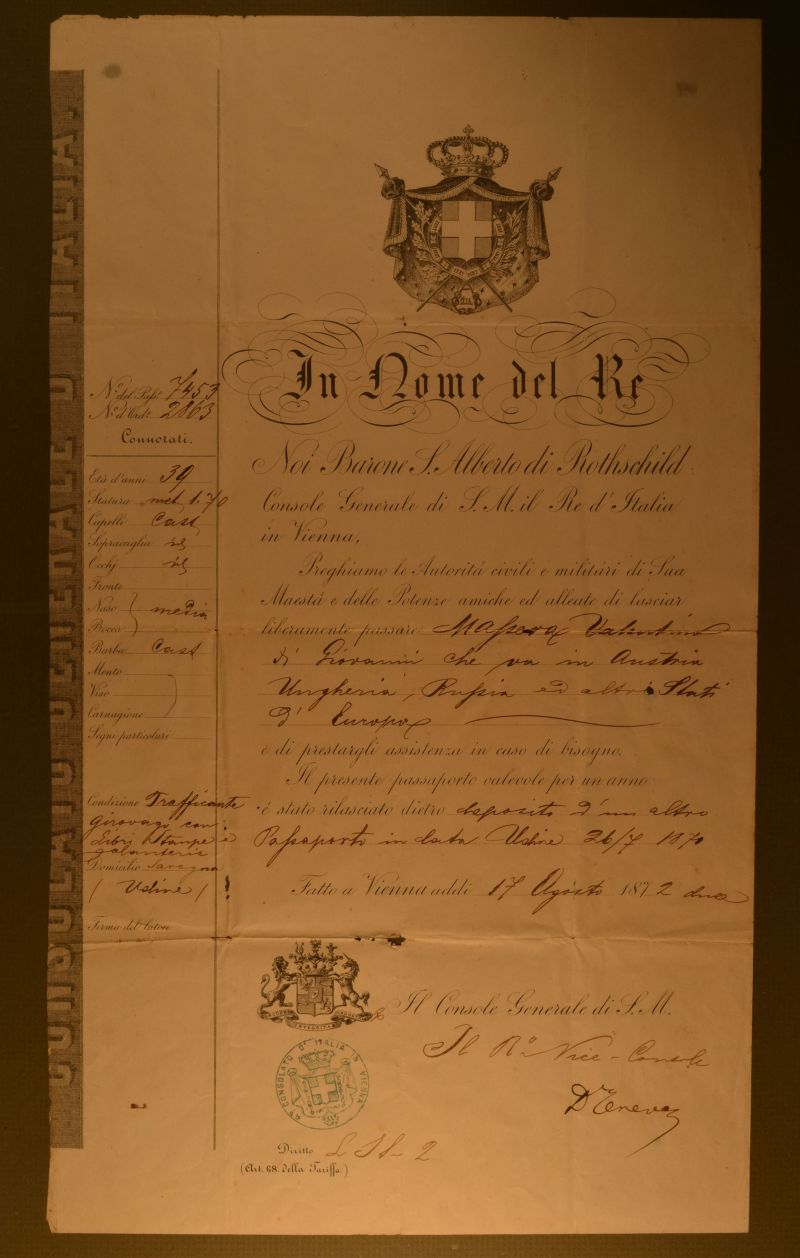 CONSOLATO GENERALE D'ITALIA.
In Nome del Re
Nº del Pass. 7453
Nº d'Ord. 2863
Connotati.
Età d'anni 39
Statura met. 1.70
Capelli Cast
Sopracciglia
Occhj
Fronte
Naso media
Bocca
Barba Cast
Mento
Viso
Carnagione
Segni particolari
Condizione Trafficante
girovago con
libri stampe e
galanterie
Domicilio
(Udine)
Firma del latore
Noi Barone S. Alberto di Rothschild
Console Generale di S. M. il Re d'Italia
in Vienna,
Preghiamo le Autorità civili e militari di Sua
Maestà e delle Potenze amiche ed alleate di lasciar
liberamente passare Massera Valentino
di Giovanni che va in Austria
Ungheria, Russia ed altri Stati
d' Europa
è di prestargli assistenza in caso di bisogno.
Il presente passaporto valevole per un anno
è stato rilasciato dietro deposito d'un altro
Passaporto in data Udine 26/7 1870
Fatto a Vienna addì 17 Agosto 1872 due
Il Console Generale di S. M.
Il Rº Vice-Console
INTEGRITAS
Rº CONSOLATO D'ITALIA IN VIENNA
Diritto 2
(Art. 68. della Tariffa)